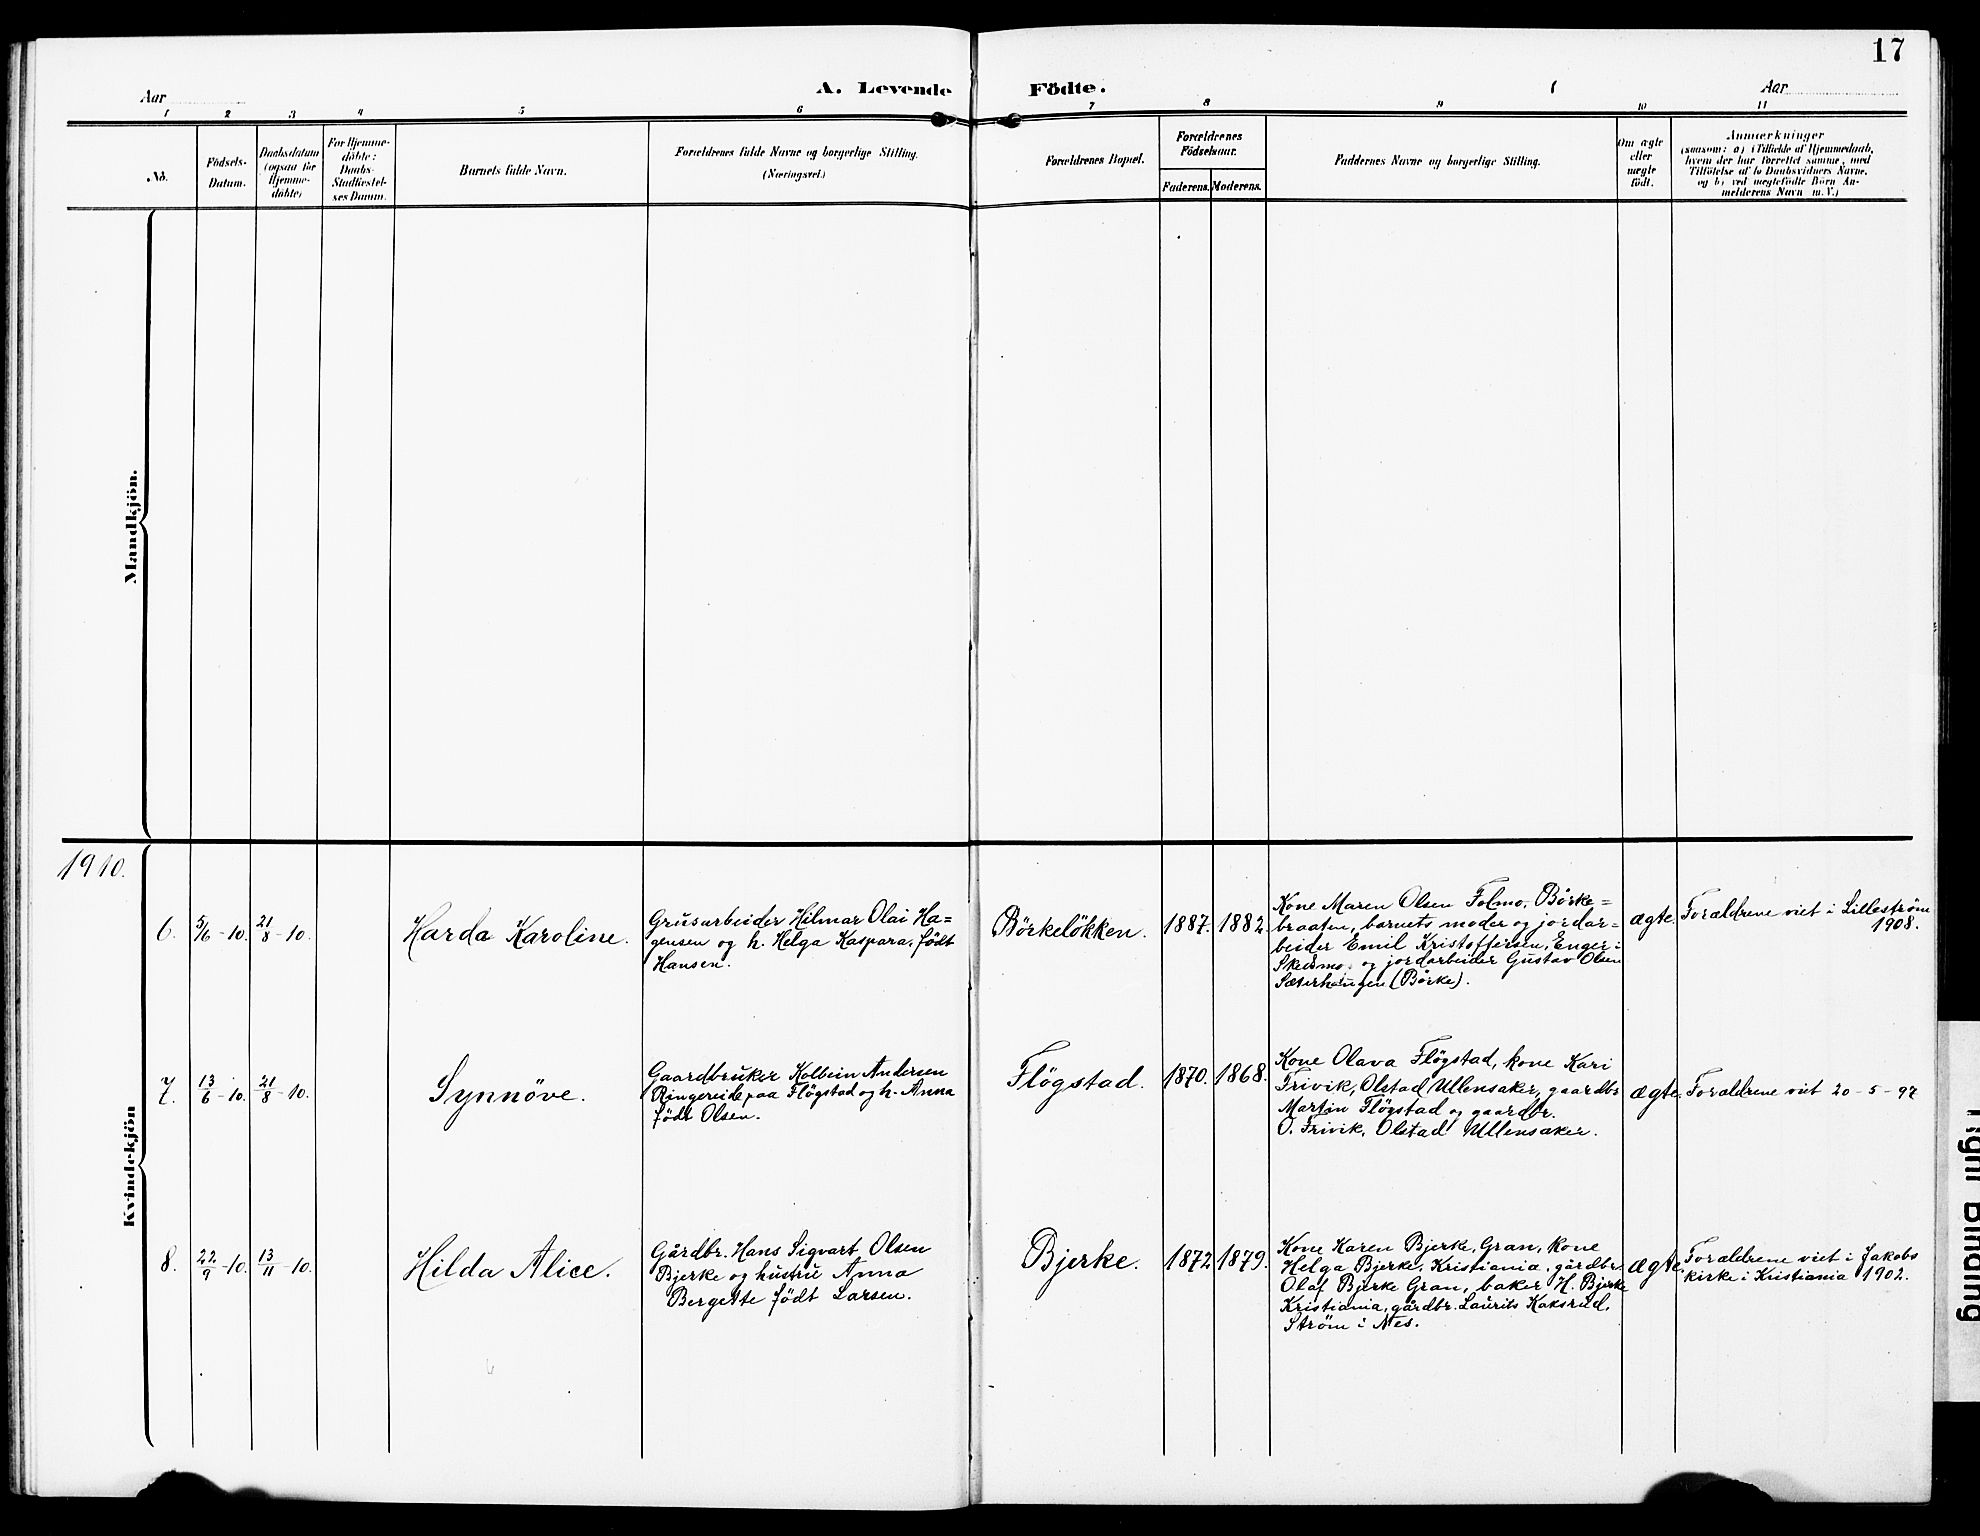 17
Aar
A. Levende Födte.
Aar
1 2 3 4 5 6 7 8 9 10 11
No.
Födsels-
Datum.
Daabsdatum
(ogsaa for
Hjemme-
döbte)
For Hjemme-
döbte:
Daabs-
Stadfæstel-
ses Datum.
Barnets fulde Navn.
Forældrenes fulde Navne og borgerlige Stilling.
(Næringsvei.)
Forældrenes Bopæl.
Forældrenes
Födselsaar.
Faderens.
Moderens.
Faddernes Navne og borgerlige Stilling.
Om ægte
eller
uægte
födt.
Anmærkninger
(saasom: a) i Tilfælde af Hjemmedaab,
hvem der har forrettet samme, med
Tilföielse af to Daabsvidners Navne,
og b) ved uægtefödte Börn An-
melderens Navn m. V.)
Mandkjön.
Kvindekjön
1910.
6.
5/6 - 10.
21/8 - 10.
Harda Karoline.
Grusarbeider Hilmar Olai Ha=
gensen og h. Helga Kaspara, født
Hansen.
Börkelökken.
1887.
1882.
Kone Maren Olsen Folmo, Børke=
braaten, barnets moder og jordar=
beider Emil Kristoffersen, Enger i
Skedsmo og jordarbeider Gustav Olsen
Sæterhaugen (Børke).
ægte.
Forældrene viet i Lilleström
1908.
7.
13/6 - 10.
21/8 - 10.
Synnöve.
Gaardbruker Kolbein Andersen
Ringereide paa Fløgstad og h. Anna
født Olsen.
Fløgstad.
1870.
1868.
Kone Olava Fløgstad, kone Kari
Frivik, Olstad Ullensaker, gaardbr
Martin Fløgstad og gaardbr.
O. Frivik, Olstad Ullensaker.
ægte.
Forældrene viet 20-5-97
8.
22/9 - 10.
13/11 - 10.
Hilda Alice.
Gårdbr. Hans Sigvart Olsen
Bjerke og hustru Anna
Bergette født Larsen.
Bjerke.
1872
1879.
Kone Karen Bjerke, Gran, kone
Helga Bjerke, Kristiania, gårdbr.
Olaf Bjerke Gran, baker H. Bjerke
Kristiania, gårdbr. Laurits Kaksrud,
Strøm i Nes.
ægte
Forældrene viet i Jakobs
kirke i Kristiania 1902.
Tight Binding